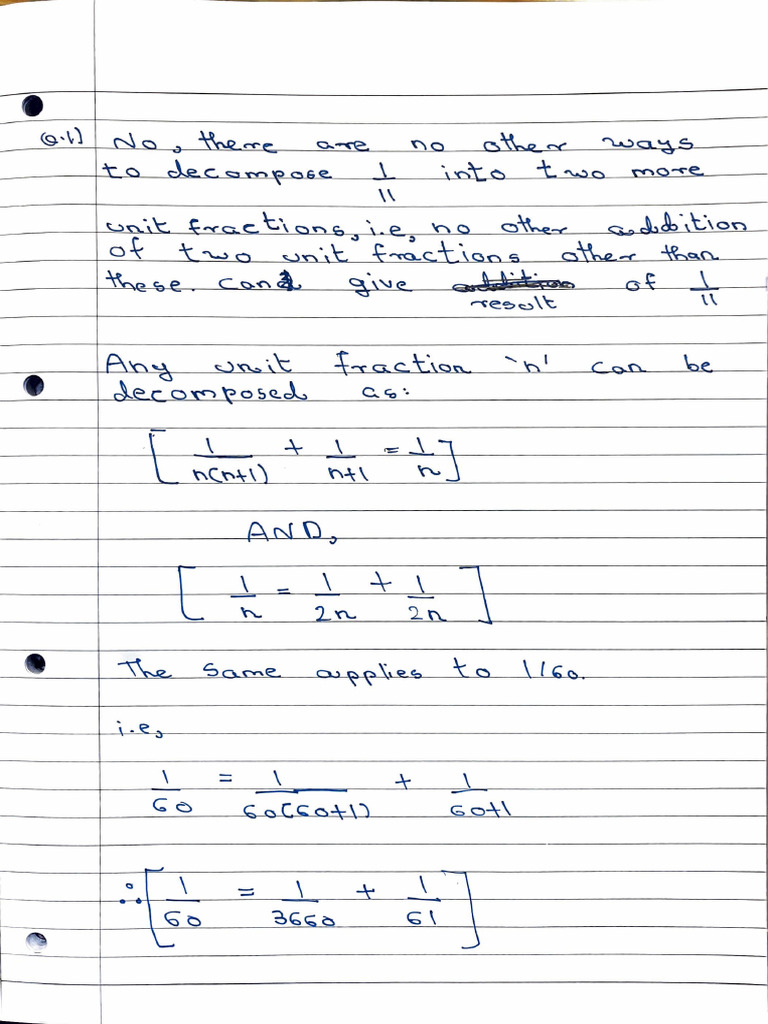 Q.1] No, there are no other ways
to decompose 1/11 into two more
unit fractions, i.e, no other addition
of two unit fractions other than
these. can give result of 1/11
Any unit fraction 'n' can be
decomposed as:
[ 1/n(n+1) + 1/n+1 = 1/n ]
AND,
[ 1/n = 1/2n + 1/2n ]
The same applies to 1/60.
i.e,
1/60 = 1/60(60+1) + 1/60+1
∴ [ 1/60 = 1/3660 + 1/61 ]